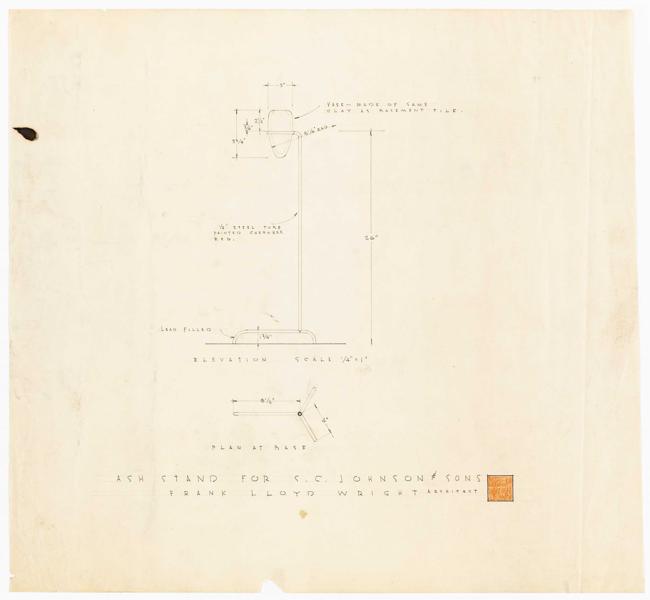 3"
VASE MADE OF SAME
CLAY AS BASEMENT TILE.
2¼"
½" STEEL TUBE
PAINTED CHEROKEE
RED.
26"
LEAD FILLED
1¾"
ELEVATION SCALE ¼"=1"
8½"
PLAN AT BASE
ASH STAND FOR S.C. JOHNSON & SONS
FRANK LLOYD WRIGHT ARCHITECT